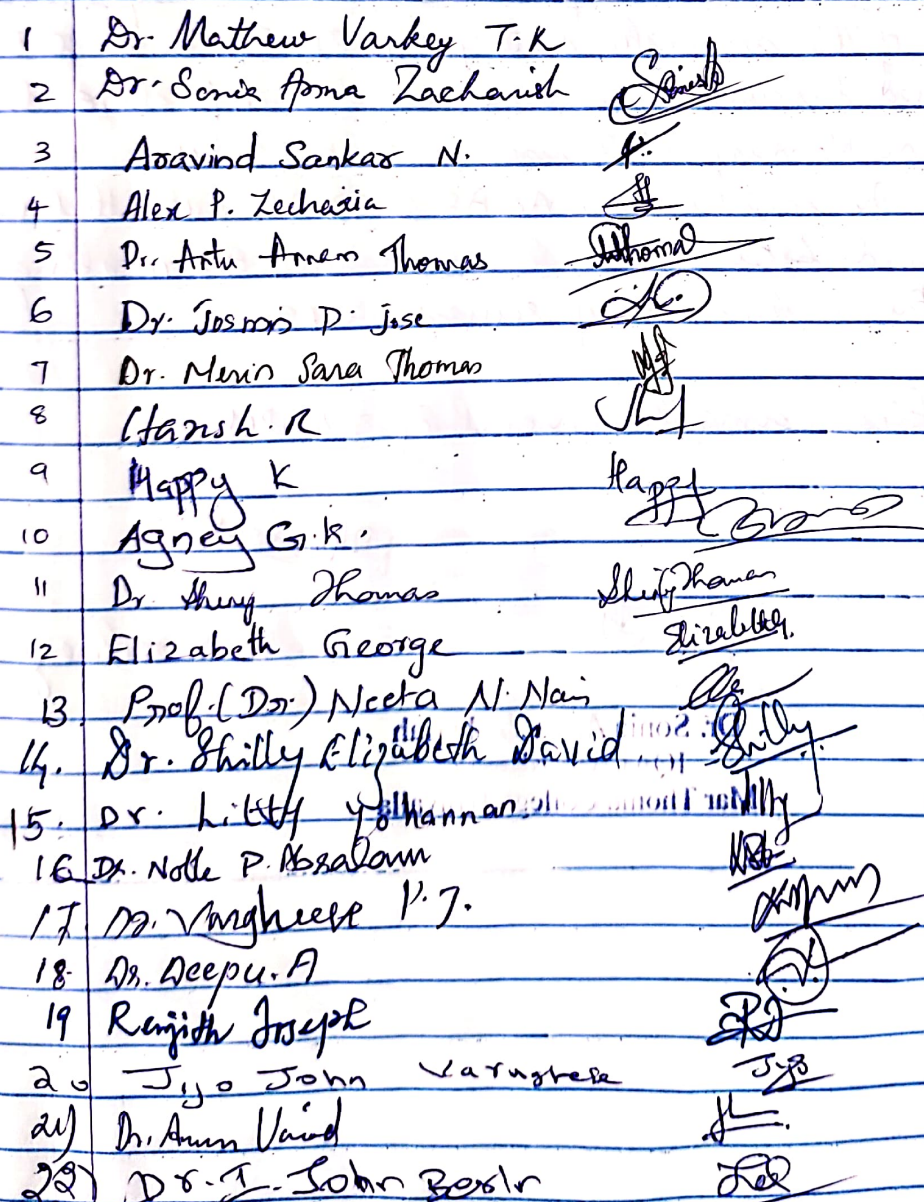 1 Dr. Mathew Varkey T.K
2 Dr. Sonia Anna Zachariah
3 Aravind Sankar N.
4 Alex P. Zecharia
5 Dr. Antu Annam Thomas Athomas
6 Dr. Josmis D. Jose
7 Dr. Merin Sara Thomas
8 Harish. R
9 Happy K Happy
10 Agney G.K.
11 Dr. Thomas
12 Elizabeth George Elizabeth
13 Prof. (Dr.) Neeta N. Nair
14. Dr. Shilly Elizabeth David Shilly
15. Dr. Litty Yohannan
16 Dr. Noble P. Absalom
17 Dr. Vargheese P.J.
18. Dr. Deepu. A
19 Renjith Joseph
20 Jijo John Varughese Jijo
21) Dr. Arun
22) Dr. I. John Berlin